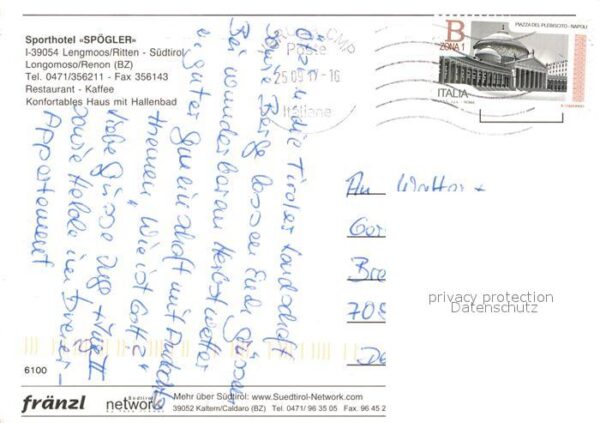 Sporthotel «SPÖGLER»
I-39054 Lengmoos/Ritten - Südtirol
Longomoso/Renon (BZ)
Tel. 0471/356211 - Fax 356143
Restaurant - Kaffee
Konfortables Haus mit Hallenbad
CMP
Poste
25 09 17-16
Italiane
B
ZONA 1
PIAZZA DEL PLEBISCITO - NAPOLI
ITALIA
die Tiroler Landschaft
sowie Berge lassen Euch grüssen
Bei wunderbarem Herbstwetter
guter Gemeinschaft mit
themen, Wie ist Gott?
Liebe Grüsse
sowie in
Appartement
An Walter +
Gor
Bre
70
De
privacy protection
Datenschutz
6100
fränzl
Südtirol
network
Mehr über Südtirol: www.Suedtirol-Network.com
39052 Kaltern/Caldaro (BZ) Tel. 0471/ 96 35 05 Fax. 96 45 2